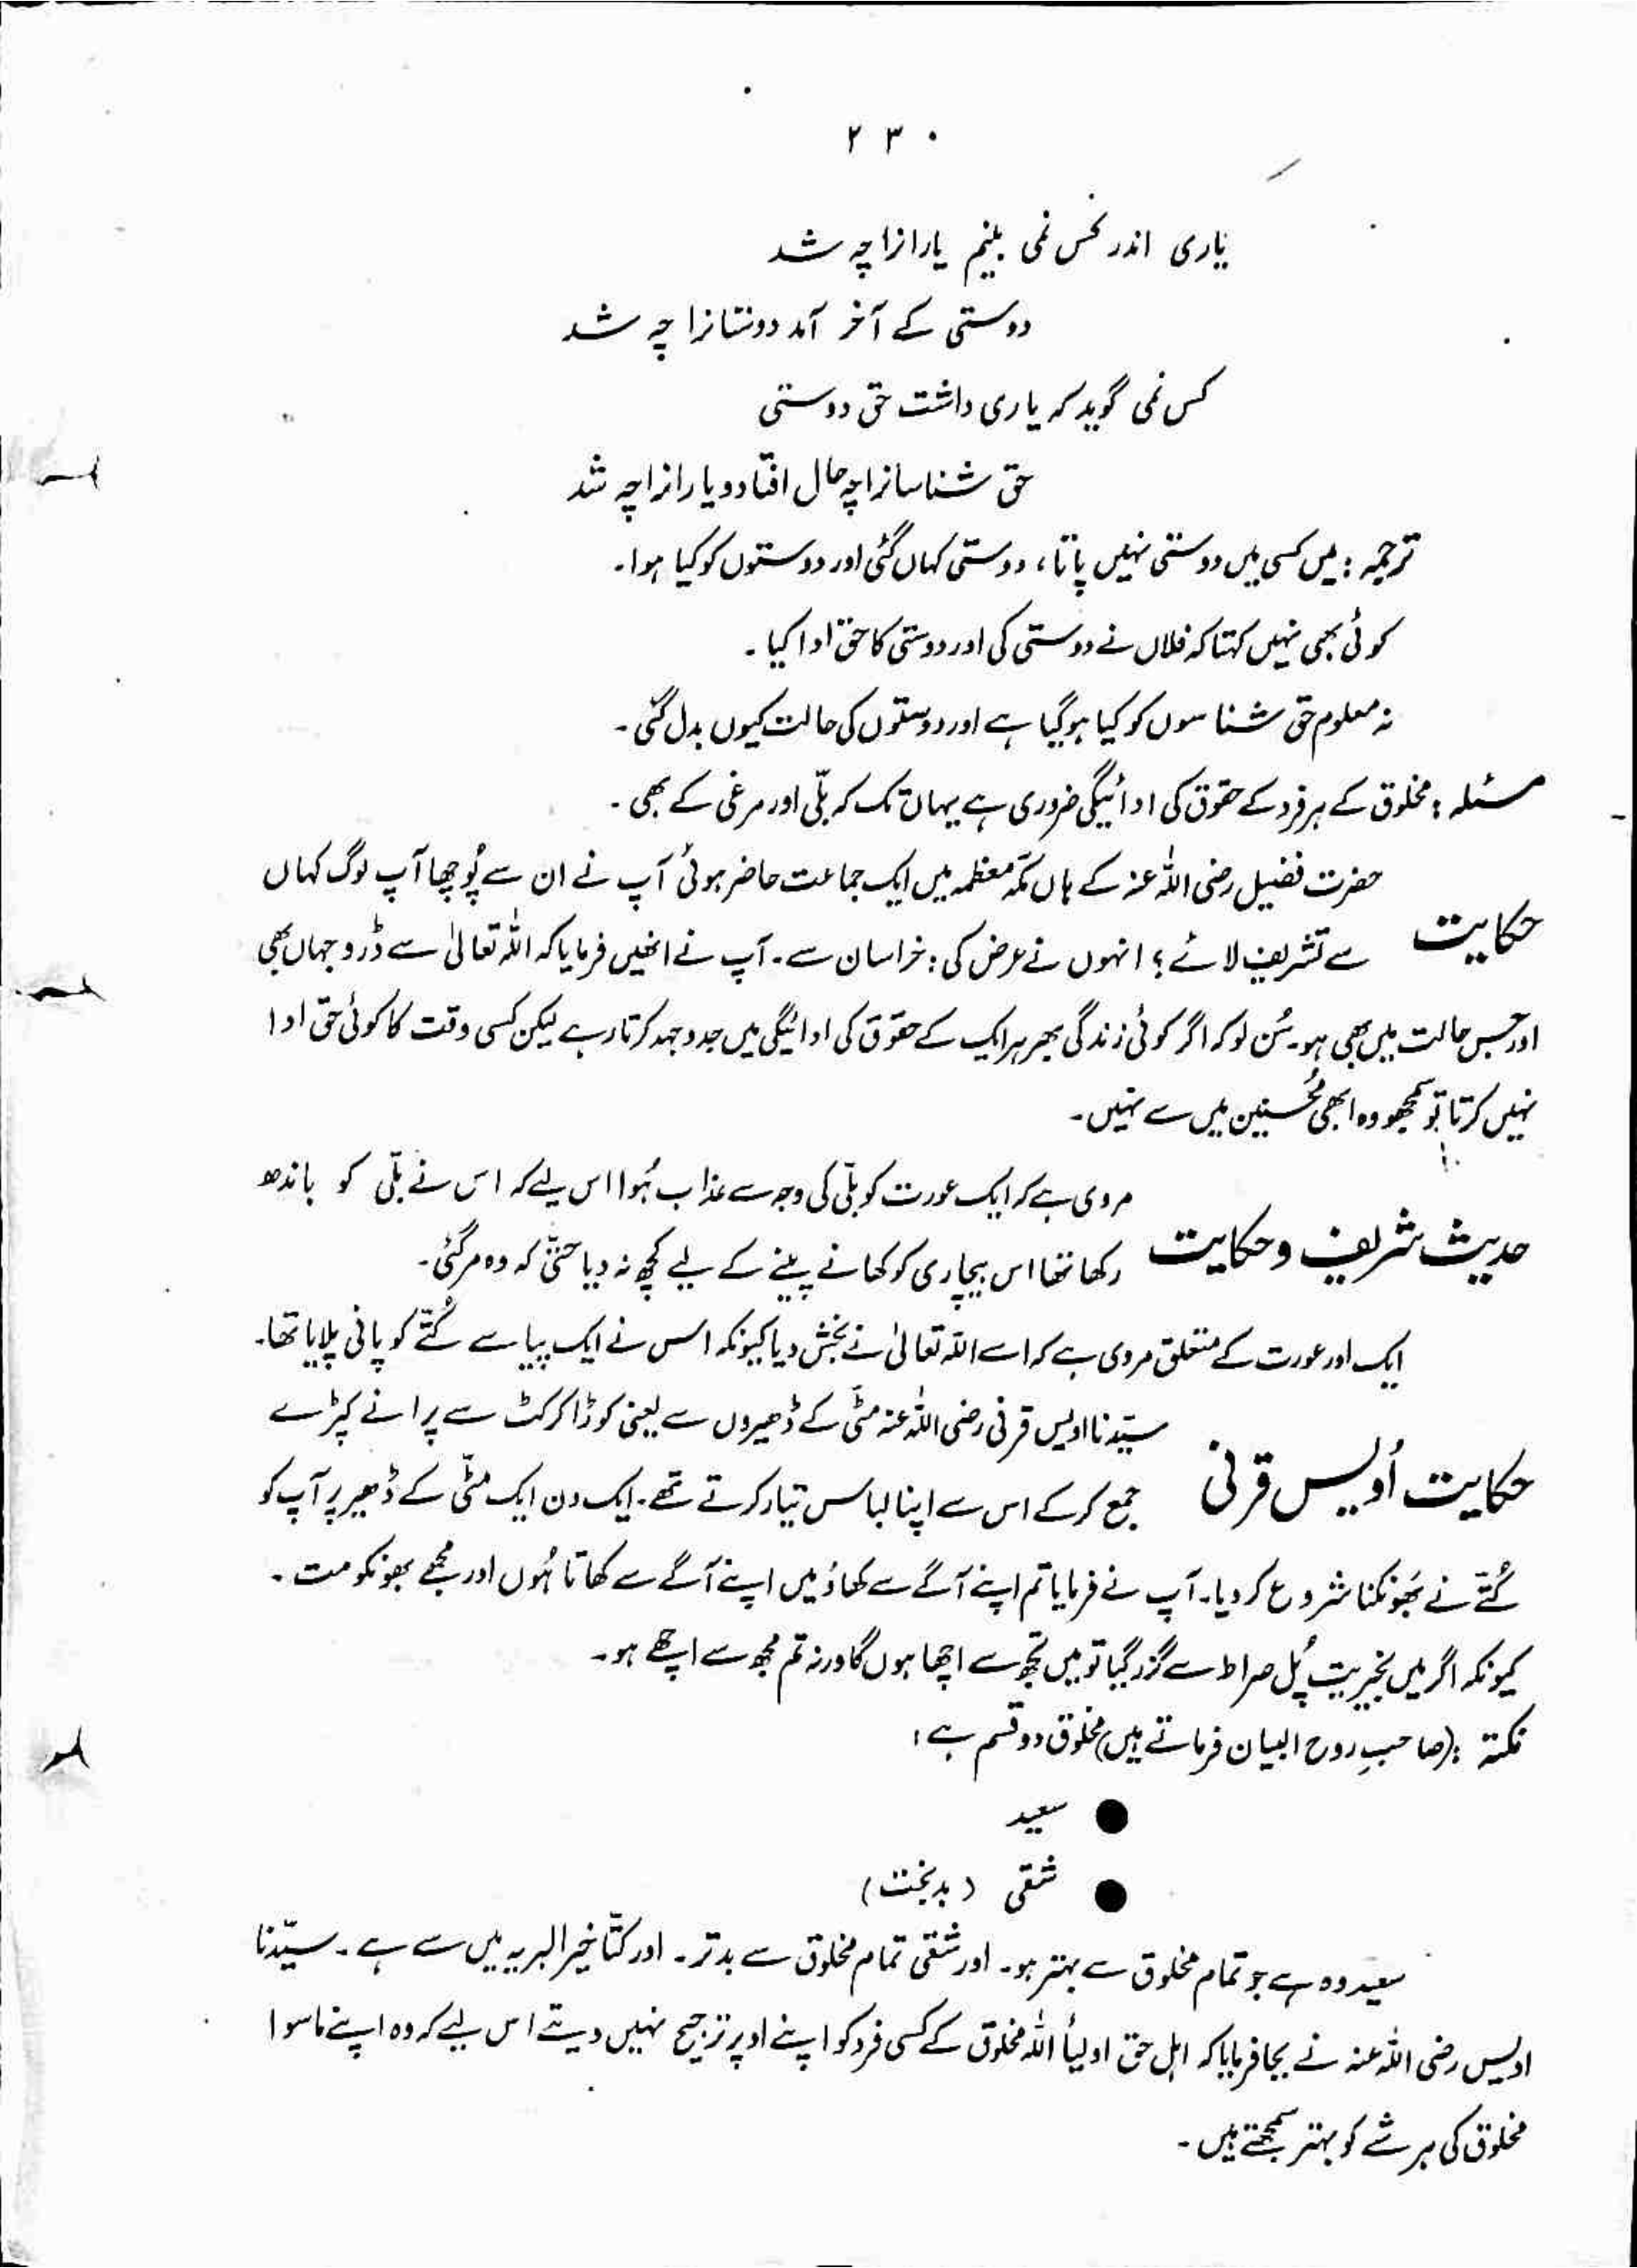 ۲۳۰
یاری اندر کس نمی بینم یارانرا چہ شد
دوستی کے آخر آمد دوستانرا چہ شد
کس نمی گوید کہ یاری داشت حق دوستی
حق شناسانرا چہ حال افتاد و یارانرا چہ شد
ترجمہ : میں کسی میں دوستی نہیں پاتا، دوستی کہاں گئی اور دوستوں کو کیا ہوا۔
کوئی بھی نہیں کہتا کہ فلاں نے دوستی کی اور دوستی کا حق ادا کیا۔
نہ معلوم حق شناسوں کو کیا ہوگیا ہے اور دوستوں کی حالت کیوں بدل گئی۔
مسئلہ : مخلوق کے ہر فرد کے حقوق کی ادائیگی ضروری ہے یہاں تک کہ بلّی اور مرغی کے بھی۔
حضرت فضیل رضی اللہ عنہ کے ہاں مکہ معظمہ میں ایک جماعت حاضر ہوئی آپ نے ان سے پُوچھا آپ لوگ کہاں
حکایت سے تشریف لائے؟ انہوں نے عرض کی : خراسان سے۔ آپ نے انھیں فرمایا کہ اللہ تعالیٰ سے ڈرو جہاں بھی
اور جس حالت میں بھی ہو۔ سُن لو کہ اگر کوئی زندگی بھر ہر ایک کے حقوق کی ادائیگی میں جدوجہد کرتا رہے لیکن کسی وقت کا کوئی حق ادا
نہیں کرتا تو سمجھو وہ ابھی مُحسنین میں سے نہیں۔
مروی ہے کہ ایک عورت کو بلّی کی وجہ سے عذاب ہُوا اس لیے کہ اس نے بلّی کو باندھ
حدیث شریف و حکایت رکھا تھا اس بیچاری کو کھانے پینے کے لیے کچھ نہ دیا حتیٰ کہ وہ مرگئی۔
ایک اور عورت کے متعلق مروی ہے کہ اسے اللہ تعالیٰ نے بخش دیا کیونکہ اس نے ایک پیاسے کُتّے کو پانی پلایا تھا۔
سیّدنا اویس قرنی رضی اللہ عنہ مٹی کے ڈھیروں سے یعنی کوڑا کرکٹ سے پرانے کپڑے
حکایت اُویس قرنی جمع کرکے اس سے اپنا لباس تیار کرتے تھے۔ ایک دن ایک مٹّی کے ڈھیر پر آپ کو
کُتّے نے بھَونکنا شروع کردیا۔ آپ نے فرمایا تم اپنے آگے سے کھاؤ میں اپنے آگے سے کھاتا ہُوں اور مجھے بھونکو مت۔
کیونکہ اگر میں بخیریت پُل صراط سے گزر گیا تو میں تجھ سے اچھا ہوں گا ورنہ تم مجھ سے اچھے ہو۔
نکتہ : (صاحبِ روح البیان فرماتے ہیں) مخلوق دو قسم ہے :
● سعید
● شقی (بدبخت)
سعید وہ ہے جو تمام مخلوق سے بہتر ہو۔ اور شقی تمام مخلوق سے بدتر۔ اور کتّا خیر البریہ میں سے ہے۔ سیّدنا
اویس رضی اللہ عنہ نے بجا فرمایا کہ اہل حق اولیأ اللہ مخلوق کے کسی فرد کو اپنے اوپر ترجیح نہیں دیتے اس لیے کہ وہ اپنے ماسوا
مخلوق کی ہر شے کو بہتر سمجھتے ہیں۔